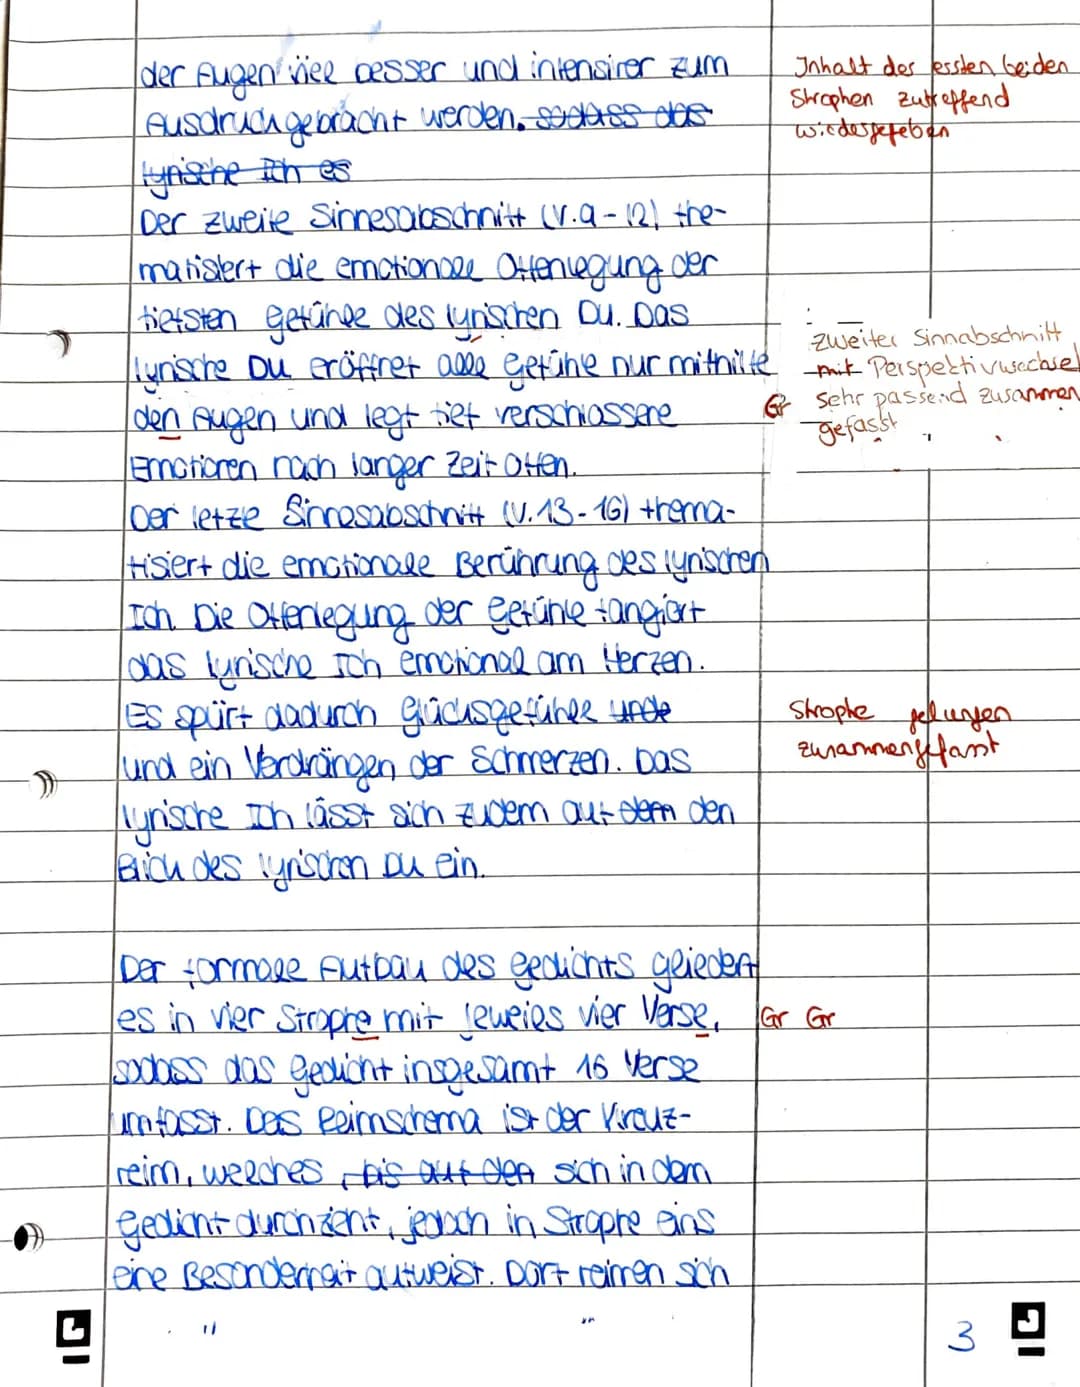 der Augen viel besser und intensirer zum
Ausdruck gebracht werden. sodass das
lyrische Ich es
Der zweite Sinnesabschnitt (V.9-12) the-
matisiert die emotionale Offenlegung der
tiefsten Gefühle des lyrischen Du. Das
lyrische Du eröffnet alle Gefühle nur mithilfe
den Augen und legt tief verschlossene
Emotionen nach langer Zeit offen.
Der letzte Sinnesabschnitt (V.13-16) thema-
tisiert die emotionale Berührung des lyrischen
Ich. Die Offenlegung der Gefühle tangiert
das lyrische Ich emotional am Herzen.
Es spürt dadurch Glücksgefühle unde
und ein Verdrängen der Schmerzen. Das
lyrische Ich lässt sich zudem auf dem den
Blick des lyrischen Du ein.
Der formale Aufbau des Gedichts gliedert
es in vier Strophe mit jeweils vier Verse,
sodass das Gedicht insgesamt 16 Verse
umfasst. Das Reimschema ist der Kreuz-
reim, welches , bis auf den sich in dem
Gedicht durchzieht, jedoch in Strophe eins
eine Besonderheit aufweist. Dort reimen sich
Inhalt der ersten beiden
Strophen zutreffend
wiedergegeben
zweiter Sinnabschnitt
mit Perspektivwechsel
Gr sehr passend zusammen
gefasst
Strophe gelungen
zusammengefasst
Gr Gr
3